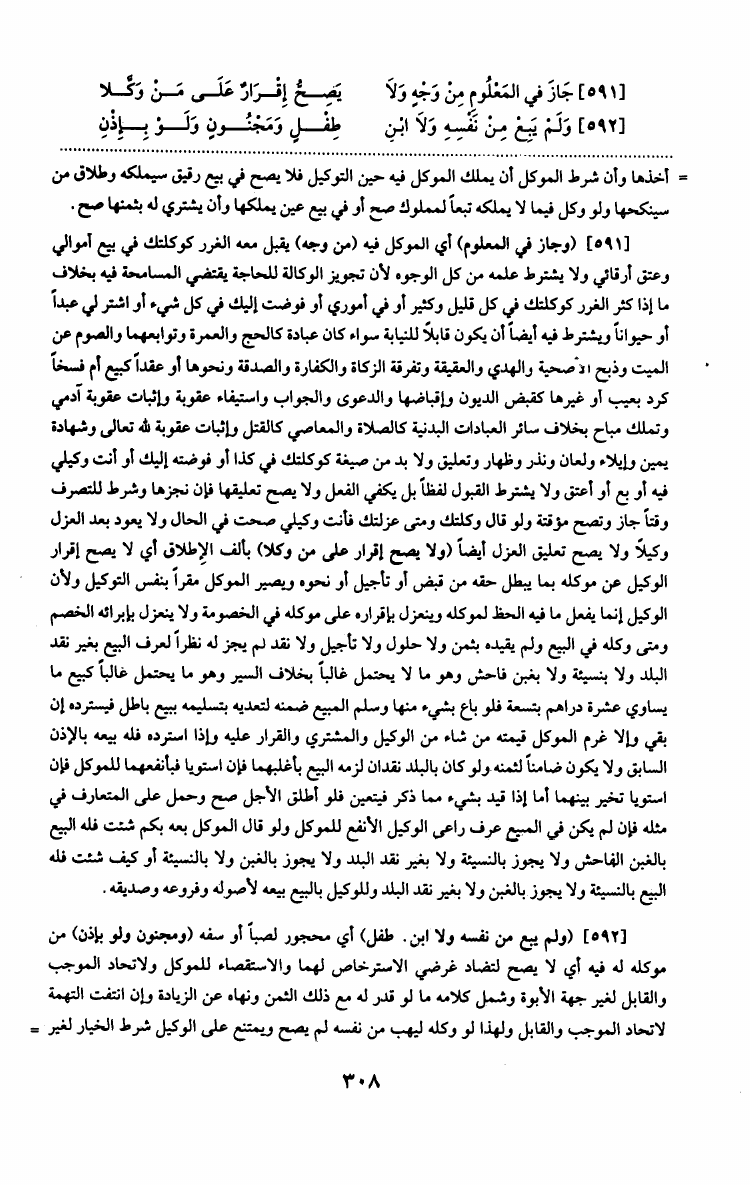 [٥٩١] جَازَ في المَعْلُومِ مِنْ وَجْهٍ وَلَا يَصِحُّ إِقْرَارٌ عَلَى مَنْ وَكَّلا
[٥٩٢] وَلَمْ يَبِعْ مِنْ نَفْسِهِ وَلَا ابْنِ طِفْلٍ وَمَجْنُونٍ وَلَوْ بِإِذْنِ
= أخذها وأن شرط الموكل أن يملك الموكل فيه حين التوكيل فلا يصح في بيع رقيق سيملكه وطلاق من
سينكحها ولو وكل فيما لا يملكه تبعاً لمملوك صح أو في بيع عين يملكها وأن يشتري له بثمنها صح.
[٥٩١] (وجاز في المعلوم) أي الموكل فيه (من وجه) يقبل معه الغرر كوكلتك في بيع أموالي
وعتق أرقائي ولا يشترط علمه من كل الوجوه لأن تجويز الوكالة للحاجة يقتضي المسامحة فيه بخلاف
ما إذا كثر الغرر كوكلتك في كل قليل وكثير أو في أموري أو فوضت إليك في كل شيء أو اشتر لي عبداً
أو حيواناً ويشترط فيه أيضاً أن يكون قابلاً للنيابة سواء كان عبادة كالحج والعمرة وتوابعهما والصوم عن
الميت وذبح الأضحية والهدي والعقيقة وتفرقة الزكاة والكفارة والصدقة ونحوها أو عقداً كبيع أم فسخاً
كرد بعيب أو غيرها كقبض الديون وإقباضها والدعوى والجواب واستيفاء عقوبة وإثبات عقوبة آدمي
وتملك مباح بخلاف سائر العبادات البدنية كالصلاة والمعاصي كالقتل وإثبات عقوبة لله تعالى وشهادة
يمين وإيلاء ولعان ونذر وظهار وتعليق ولا بد من صيغة كوكلتك في كذا أو فوضته إليك أو أنت وكيلي
فيه أو بع أو أعتق ولا يشترط القبول لفظاً بل يكفي الفعل ولا يصح تعليقها فإن نجزها وشرط للتصرف
وقتاً جاز وتصح مؤقتة ولو قال وكلتك ومتى عزلتك فأنت وكيلي صحت في الحال ولا يعود بعد العزل
وكيلاً ولا يصح تعليق العزل أيضاً (ولا يصح إقرار على من وكلا) بألف الإطلاق أي لا يصح إقرار
الوكيل عن موكله بما يبطل حقه من قبض أو تأجيل أو نحوه ويصير الموكل مقراً بنفس التوكيل ولأن
الوكيل إنما يفعل ما فيه الحظ لموكله وينعزل بإقراره على موكله في الخصومة ولا ينعزل بإبرائه الخصم
ومتى وكله في البيع ولم يقيده بثمن ولا حلول ولا تأجيل ولا نقد لم يجز له نظراً لعرف البيع بغير نقد
البلد ولا بنسيئة ولا بغبن فاحش وهو ما لا يحتمل غالباً بخلاف السير وهو ما يحتمل غالباً كبيع ما
يساوي عشرة دراهم بتسعة فلو باع بشيء منها وسلم المبيع ضمنه لتعديه بتسليمه ببيع باطل فيسترده إن
بقي وإلا غرم الموكل قيمته من شاء من الوكيل والمشتري والقرار عليه وإذا استرده فله بيعه بالإذن
السابق ولا يكون ضامناً لثمنه ولو كان بالبلد نقدان لزمه البيع بأغلبهما فإن استويا فبأنفعهما للموكل فإن
استويا تخير بينهما أما إذا قيد بشيء مما ذكر فيتعين فلو أطلق الأجل صح وحمل على المتعارف في
مثله فإن لم يكن في المبيع عرف راعى الوكيل الأنفع للموكل ولو قال الموكل بعه بكم شئت فله البيع
بالغبن الفاحش ولا يجوز بالنسيئة ولا بغير نقد البلد ولا يجوز بالغبن ولا بالنسيئة أو كيف شئت فله
البيع بالنسيئة ولا يجوز بالغبن ولا بغير نقد البلد وللوكيل بالبيع بيعه لأصوله وفروعه وصديقه.
[٥٩٢] (ولم يبع من نفسه ولا ابن. طفل) أي محجور لصباً أو سفه (ومجنون ولو بإذن) من
موكله له فيه أي لا يصح لتضاد غرضي الاسترخاص لهما والاستقصاء للموكل ولاتحاد الموجب
والقابل لغير جهة الأبوة وشمل كلامه ما لو قدر له مع ذلك الثمن ونهاه عن الزيادة وإن انتفت التهمة
لاتحاد الموجب والقابل ولهذا لو وكله ليهب من نفسه لم يصح ويمتنع على الوكيل شرط الخيار لغير =
٣٠٨